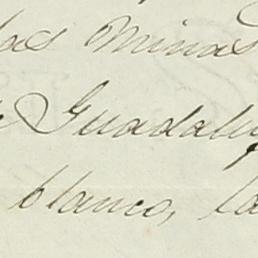 las Minas
Guadalu
blanco, la